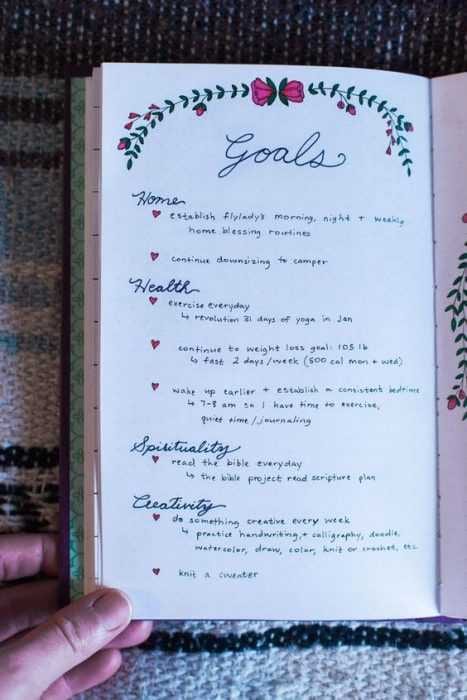 Goals
Home
establish flylady's morning, night + weekly
home blessing routines
continue downsizing to camper
Health
exercise everyday
↳ revolution 31 days of yoga in Jan
continue to weight loss goal: 105 lb
↳ fast 2 days/week (500 cal mon + wed)
wake up earlier + establish a consistent bedtime
↳ 7-8 am so I have time to exercise,
quiet time/journaling
Spirituality
read the bible everyday
↳ the bible project read scripture plan
Creativity
do something creative every week
↳ practice handwriting + calligraphy, doodle,
watercolor, draw, color, knit or crochet, etc.
knit a sweater